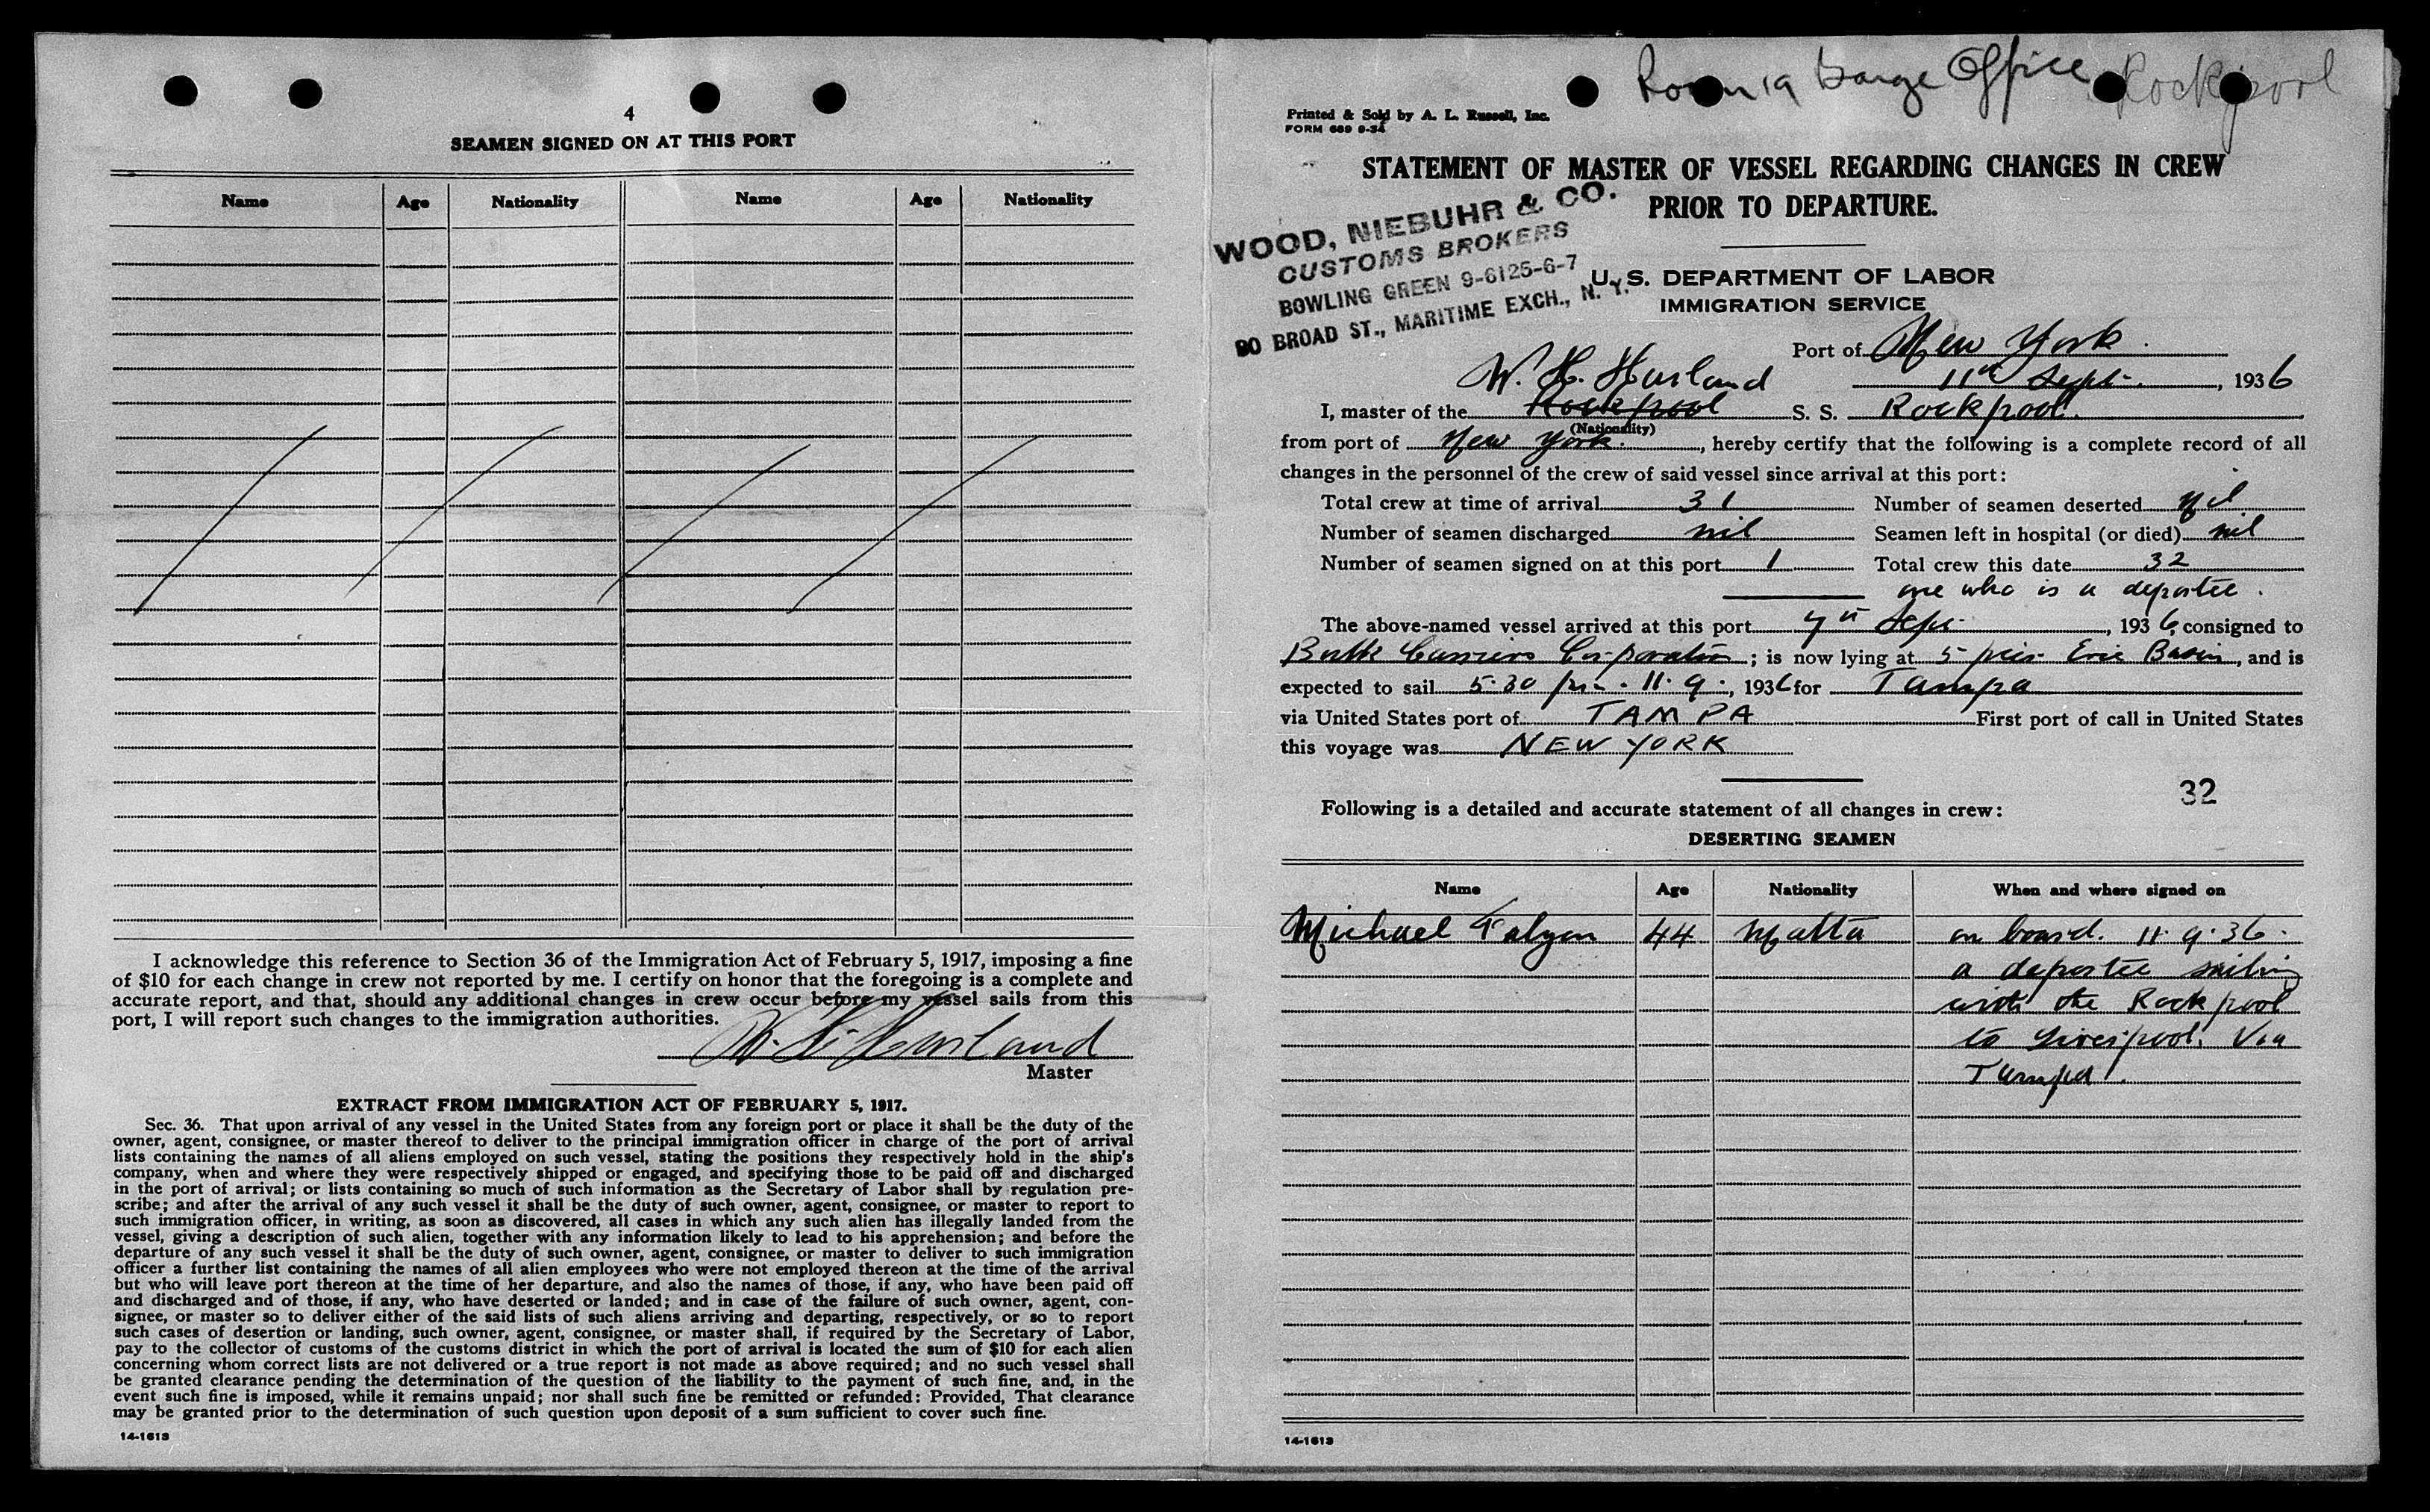 4
SEAMEN SIGNED ON AT THIS PORT
Name Age Nationality Name Age Nationality
I acknowledge this reference to Section 36 of the Immigration Act of February 5, 1917, imposing a fine
of $10 for each change in crew not reported by me. I certify on honor that the foregoing is a complete and
accurate report, and that, should any additional changes in crew occur before my vessel sails from this
port, I will report such changes to the immigration authorities.
W. H. Harland
Master
EXTRACT FROM IMMIGRATION ACT OF FEBRUARY 5, 1917.
Sec. 36. That upon arrival of any vessel in the United States from any foreign port or place it shall be the duty of the
owner, agent, consignee, or master thereof to deliver to the principal immigration officer in charge of the port of arrival
lists containing the names of all aliens employed on such vessel, stating the positions they respectively hold in the ship's
company, when and where they were respectively shipped or engaged, and specifying those to be paid off and discharged
in the port of arrival; or lists containing so much of such information as the Secretary of Labor shall by regulation pre-
scribe; and after the arrival of any such vessel it shall be the duty of such owner, agent, consignee, or master to report to
such immigration officer, in writing, as soon as discovered, all cases in which any such alien has illegally landed from the
vessel, giving a description of such alien, together with any information likely to lead to his apprehension; and before the
departure of any such vessel it shall be the duty of such owner, agent, consignee, or master to deliver to such immigration
officer a further list containing the names of all alien employees who were not employed thereon at the time of the arrival
but who will leave port thereon at the time of her departure, and also the names of those, if any, who have been paid off
and discharged and of those, if any, who have deserted or landed; and in case of the failure of such owner, agent, con-
signee, or master so to deliver either of the said lists of such aliens arriving and departing, respectively, or so to report
such cases of desertion or landing, such owner, agent, consignee, or master shall, if required by the Secretary of Labor,
pay to the collector of customs of the customs district in which the port of arrival is located the sum of $10 for each alien
concerning whom correct lists are not delivered or a true report is not made as above required; and no such vessel shall
be granted clearance pending the determination of the question of the liability to the payment of such fine, and, in the
event such fine is imposed, while it remains unpaid; nor shall such fine be remitted or refunded: Provided, That clearance
may be granted prior to the determination of such question upon deposit of a sum sufficient to cover such fine.
14-1613
Barge Office Rockpool
Printed & Sold by A. L. Russell, Inc.
FORM 689 9-34
STATEMENT OF MASTER OF VESSEL REGARDING CHANGES IN CREW
PRIOR TO DEPARTURE.
WOOD, NIEBUHR & CO.
CUSTOMS BROKERS
BOWLING GREEN 9-6125-6-7
80 BROAD ST., MARITIME EXCH., N. Y.
U. S. DEPARTMENT OF LABOR
IMMIGRATION SERVICE
Port of New York.
W. H. Harland 11th Sept., 1936
I, master of the Rockpool S. S. Rockpool.
(Nationality)
from port of New York., hereby certify that the following is a complete record of all
changes in the personnel of the crew of said vessel since arrival at this port:
Total crew at time of arrival 31 Number of seamen deserted Nil
Number of seamen discharged nil Seamen left in hospital (or died) nil
Number of seamen signed on at this port 1 Total crew this date 32
one who is a deportee.
The above-named vessel arrived at this port 7th Sept, 1936, consigned to
Bulk Carriers Corporation; is now lying at 5 pier Erie Basin, and is
expected to sail 5.30 pm. 11.9., 1936 for Tampa
via United States port of TAMPA First port of call in United States
this voyage was NEW YORK
32
Following is a detailed and accurate statement of all changes in crew:
DESERTING SEAMEN
Name Age Nationality When and where signed on
Michael 44 Malta on board. 11.9.36.
a deportee sailing
with the Rockpool
to Liverpool. Via
Tampa.
14-1613